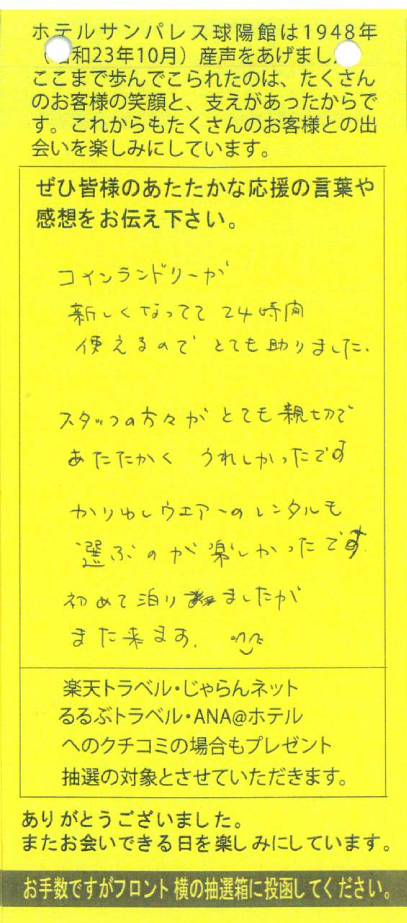 ホテルサンパレス球陽館は1948年
（昭和23年10月）産声をあげました。
ここまで歩んでこられたのは、たくさん
のお客様の笑顔と、支えがあったからで
す。これからもたくさんのお客様との出
会いを楽しみにしています。
ぜひ皆様のあたたかな応援の言葉や
感想をお伝え下さい。
コインランドリーが
新しくなってて24時間
使えるので とても助りました。
スタッフの方々が とても親切で
あたたかく うれしかったです
かりゆしウエアーのレンタルも
選ぶのが楽しかったです。
初めて泊り ましたが
また来ます。
楽天トラベル・じゃらんネット
るるぶトラベル・ANA@ホテル
へのクチコミの場合もプレゼント
抽選の対象とさせていただきます。
ありがとうございました。
またお会いできる日を楽しみにしています。
お手数ですがフロント横の抽選箱に投函してください。